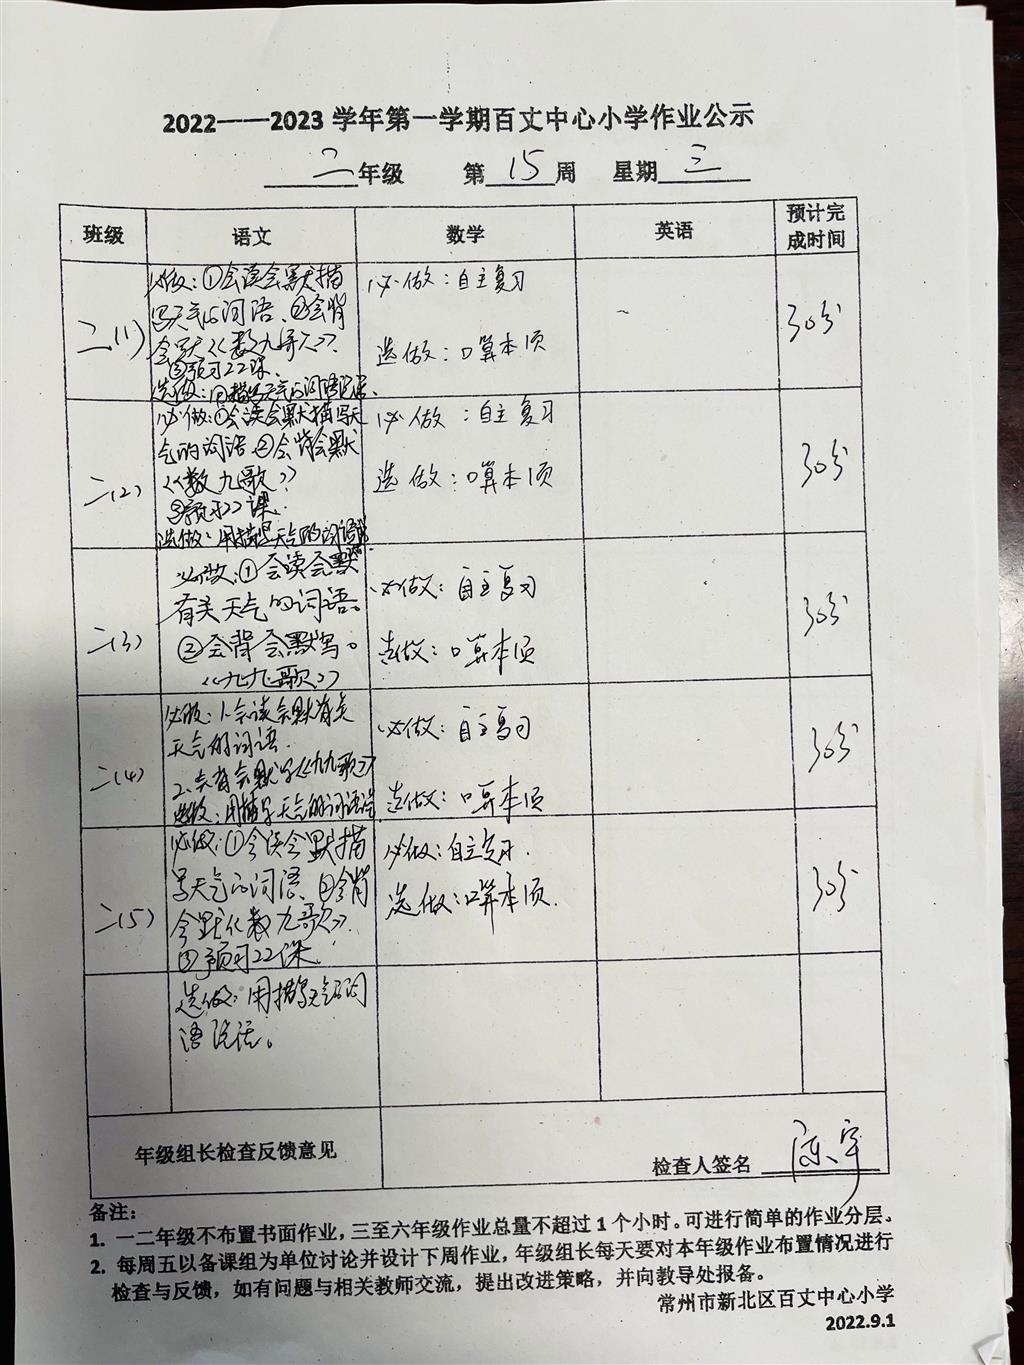 2022——2023 学年第一学期百丈中心小学作业公示
二年级 第 15 周 星期 三
班级 语文 数学 英语 预计完成时间
二(1)
必做：①会读会默描
写天气的词语、②会背
会默《数九歌》.
③预习22课.
选做：用描写天气的词语说话.
必做：自主复习
选做：口算本1页
30分
二(2)
必做：①会读会默描写天
气的词语.②会背会默
《数九歌》
③预习22课.
选做：用描写天气的词语
必做：自主复习
选做：口算本1页
30分
二(3)
必做：①会读会默
有关天气的词语。
②会背会默写。
《九九歌》
必做：自主复习
选做：口算本1页
30分
二(4)
必做：1.会读会默有关
天气的词语.
2.会背会默写《九九歌》
选做：用描写天气的词语说
必做：自主复习
选做：口算本1页
30分
二(5)
必做：①会读会默描
写天气的词语、②会背
会默《数九歌》.
③预习22课.
选做：用描写天气的词
语说话。
必做：自主复习.
选做：口算本1页.
30分
年级组长检查反馈意见
检查人签名 陈宇
备注：
1. 一二年级不布置书面作业，三至六年级作业总量不超过 1 个小时。可进行简单的作业分层。
2. 每周五以备课组为单位讨论并设计下周作业，年级组长每天要对本年级作业布置情况进行
检查与反馈，如有问题与相关教师交流，提出改进策略，并向教导处报备。
常州市新北区百丈中心小学
2022.9.1